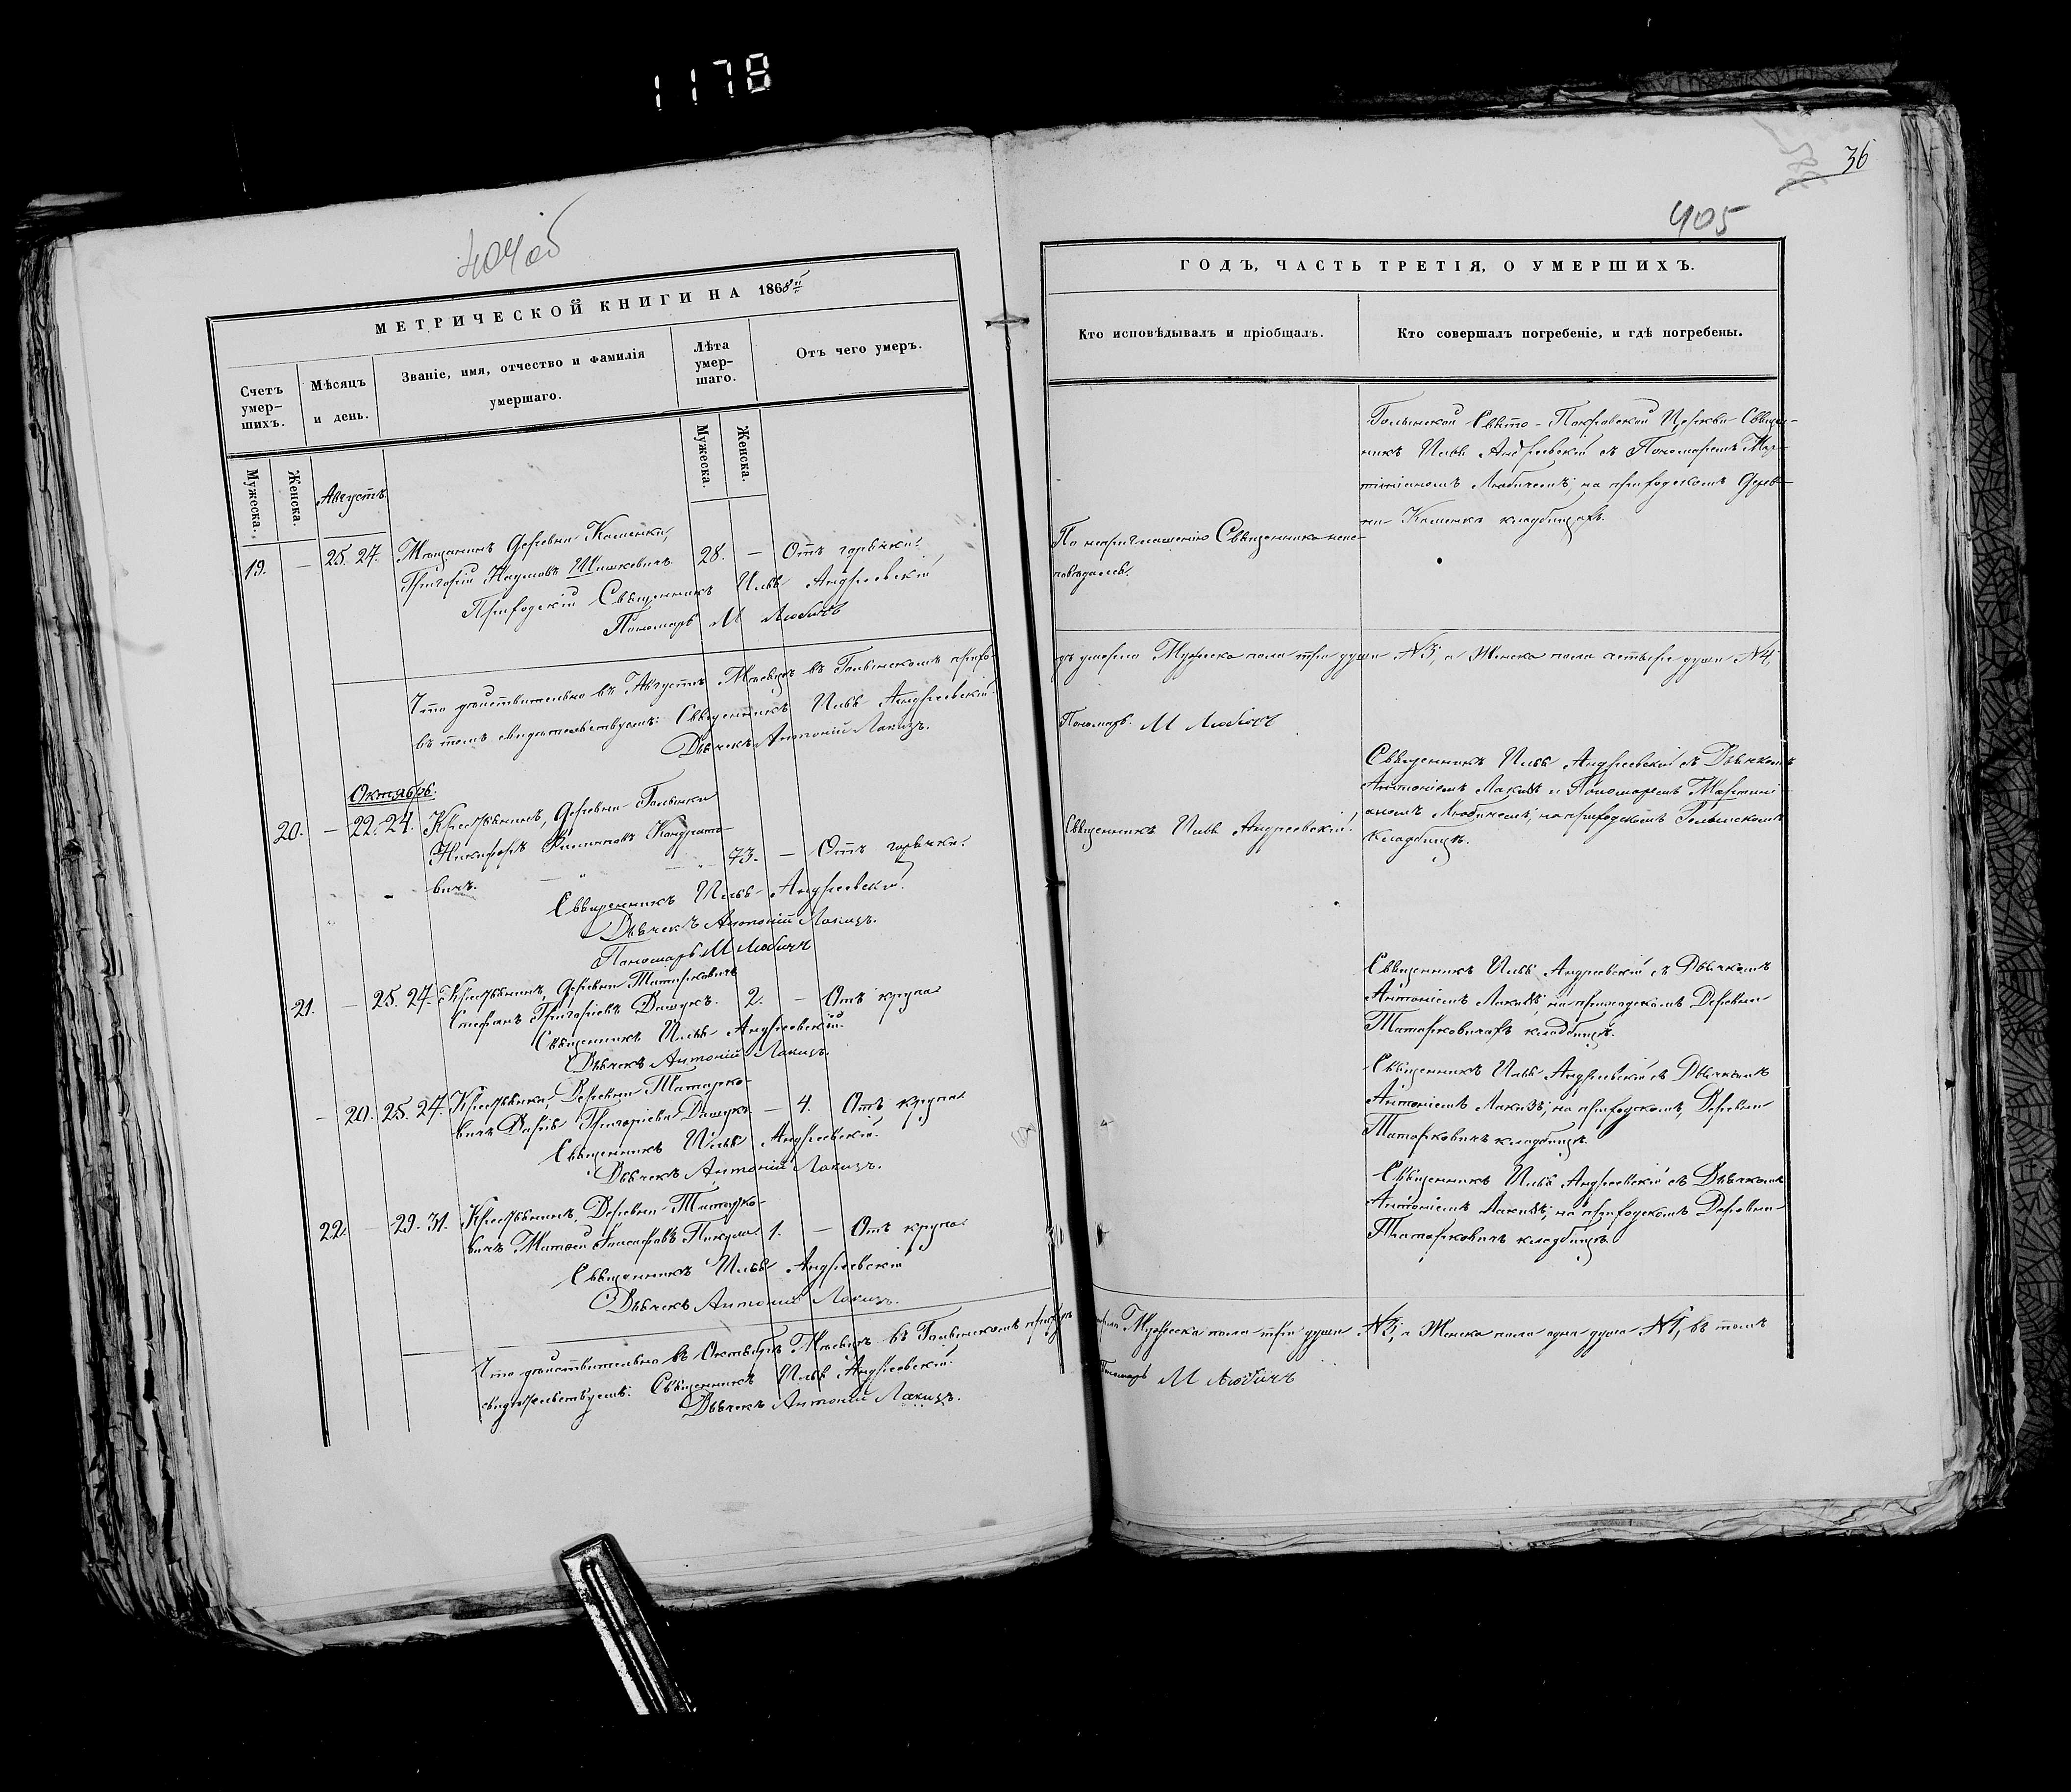 1178
36
405
404об
МЕТРИЧЕСКОЙ КНИГИ НА 1868й
Счетъ умер-
шихъ.
Мѣсяцъ
и день.
Званіе, имя, отчество и фамилія
умершаго.
Лѣта
умер-
шаго.
Отъ чего умеръ.
Мужеска.
Женска.
Мужеска.
Женска.
Августъ.
19. — 25. 27. Мѣщанинъ Деревни Каменки,
Григорій Наумовъ Шишкевичъ. 28. — Отъ горячки.
Приходскій Священникъ Илья Андреевскій
Пономарь М Любичъ
Что дѣйствительно въ Августѣ Мѣсяцѣ въ Голынскомъ прихо-
въ томъ свидѣтельствуемъ: Священникъ Илья Андреевскій.
Дьячекъ Антоній Лакизъ.
Октябрь.
20. — 22. 24. Крестьянинъ, Деревни Голынки
Никифоръ Кондрато-
вичъ. 73. — Отъ горячки.
Священникъ Илья Андреевскій.
Дьячекъ Антоній Лакизъ.
Пономарь М Любичъ
21. — 25. 27. Крестьянинъ, Деревни Татарковичъ
Стефанъ Григоріевъ Дашукъ. 2. — Отъ крупа
Священникъ Илья Андреевскій.
Дьячекъ Антоній Лакизъ.
— 20. 25. 27. Крестьянка, Деревни Татарко-
вичъ Дарія Григоріева Дашукъ — 4. Отъ крупа
Священникъ Илья Андреевскій.
Дьячекъ Антоній Лакизъ.
22. — 29. 31. Крестьянинъ, Деревни Татарко-
вичъ Матѳей Іоасафовъ Пикула 1. — Отъ крупа.
Священникъ Илья Андреевскій
Дьячекъ Антоній Лакизъ.
Что дѣйствительно въ Октябрѣ Мѣсяцѣ въ Голынскомъ приходѣ
свидѣтельствуемъ: Священникъ Илья Андреевскій.
Дьячекъ Антоній Лакизъ.
ГОДЪ, ЧАСТЬ ТРЕТІЯ, О УМЕРШИХЪ.
Кто исповѣдывалъ и пріобщалъ.
Кто совершалъ погребеніе, и гдѣ погребены.
По неприглашенію Священника неис-
повѣдался.
Голынской Свято-Покровской Церкви Священ-
никъ Илья Андреевскій съ Пономаремъ Мар-
тиніаномъ Любичемъ; на приходскомъ Дерев-
ни Каменка кладбищѣ.
дѣ умерло Мужеска пола три души №3, и Женска пола четыре души №4,
Пономарь М Любичъ
Священникъ Илья Андреевскій.
Священникъ Илья Андреевскій съ Дьячкомъ
Антоніемъ Лакизъ и Пономаремъ Мартині-
аномъ Любичемъ, на приходскомъ Голынскомъ
кладбищѣ.
Священникъ Илья Андреевскій съ Дьячкомъ
Антоніемъ Лакизъ; на приходскомъ Деревни
Татарковичахъ кладбищѣ.
Священникъ Илья Андреевскій съ Дьячкомъ
Антоніемъ Лакизъ; на приходскомъ, Деревни
Татарковичъ кладбищѣ.
Священникъ Илья Андреевскій съ Дьячкомъ
Антоніемъ Лакизъ; на приходскомъ Деревни
Татарковичъ кладбищѣ.
Мужеска пола три души №3, и Женска пола одна душа №1, въ томъ
Пономарь М Любичъ